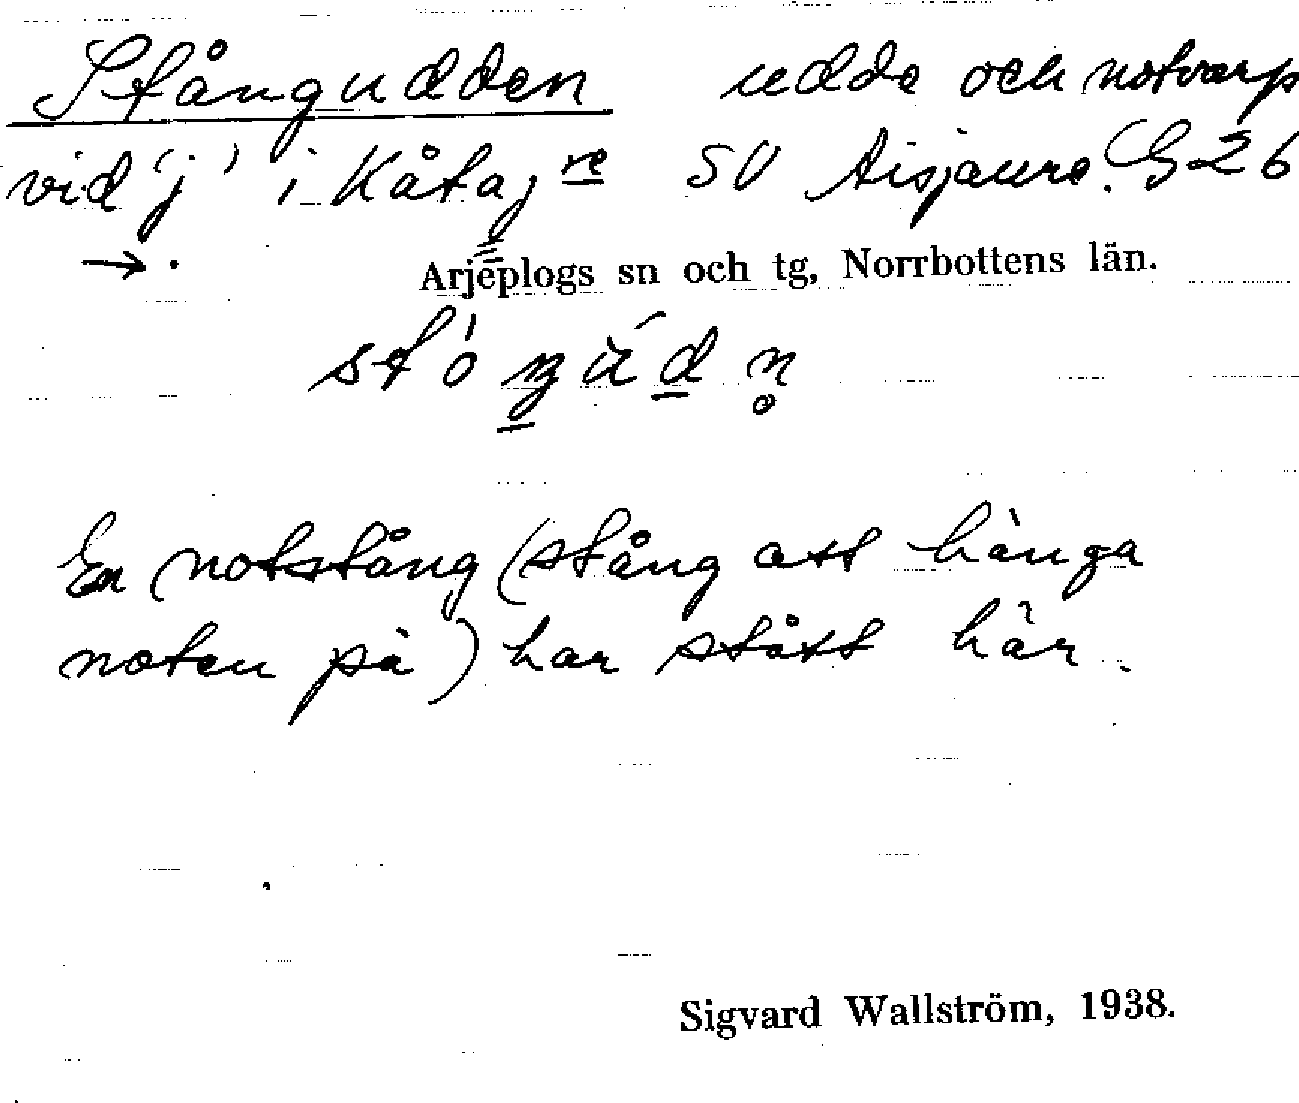 Stångudden udde och notvarp
vid 'j' i Kåtajre SV Aisjaure. G 26
→.
Arjeplogs sn och tg, Norrbottens län.
En notstång (stång att hänga
noten på) har stått här.
Sigvard Wallström, 1938.